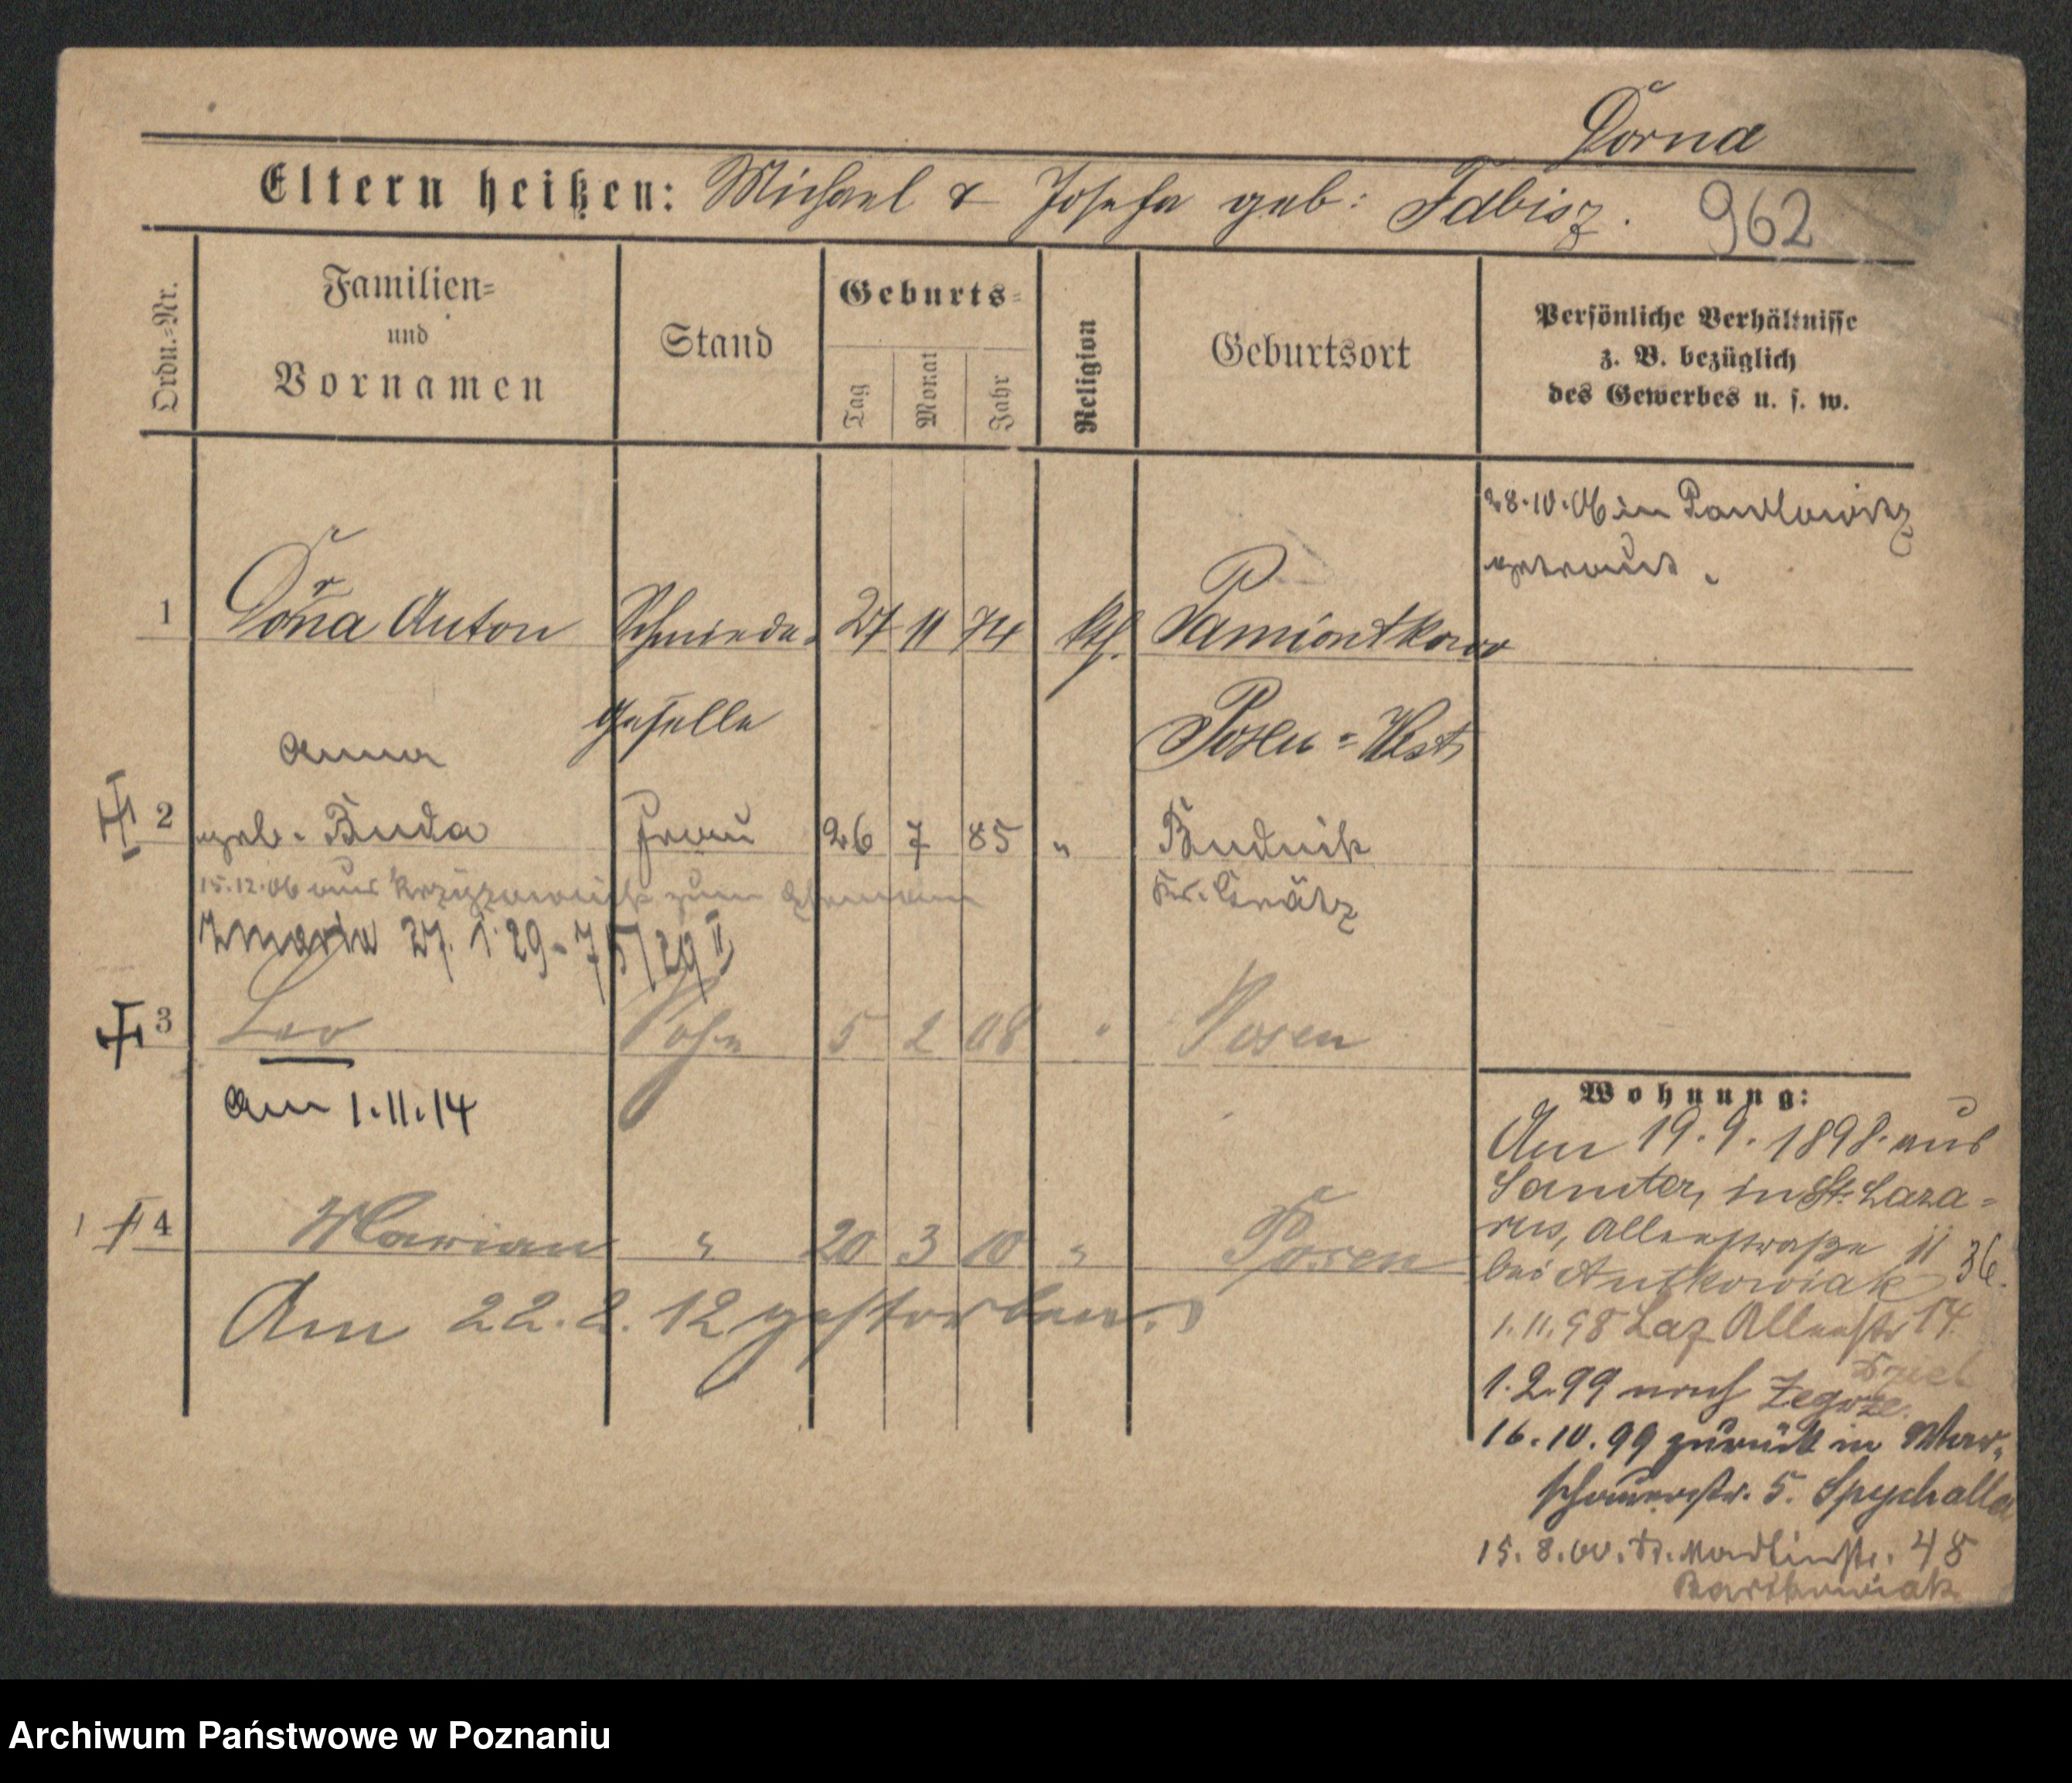 Dorna
Eltern heißen: Michael & Josefa geb: Fabisz.
962
Ordn.=Nr.
Familien=
und
Vornamen
Stand
Geburts=
Tag
Monat
Jahr
Religion
Geburtsort
Persönliche Verhältnisse
z. B. bezüglich
des Gewerbes u. s. w.
28.10.06 in Pawlowitz
getraut.
1 Dorna Anton Schmiede= 27 11 74 kth. Pamiontkowo
geselle Posen=West
Anna
2 geb. Buda Frau 26 7 85 " Budnik
15.12.06 aus zum Ehemann Kr. Grätz
zmarła 27. 1. 29 - 75/29 II
3 Leo Sohn 5 2 08 " Posen
Am 1.11.14
4 Marian " 20 3 10 " Posen
Am 22.2.12 gestorben.
Wohnung:
Am 19.9.1898. aus
Samter, in St. Laza=
rus, Allenstraße 36.
bei Antkowiak
1.11.98 Laz Allenstr 14
1.2.99 nach Zegrze.
16.10.99 zurück in War=
schauerstr. 5. Spychalla
15.8.00. 48
Bartkowiak
Archiwum Państwowe w Poznaniu